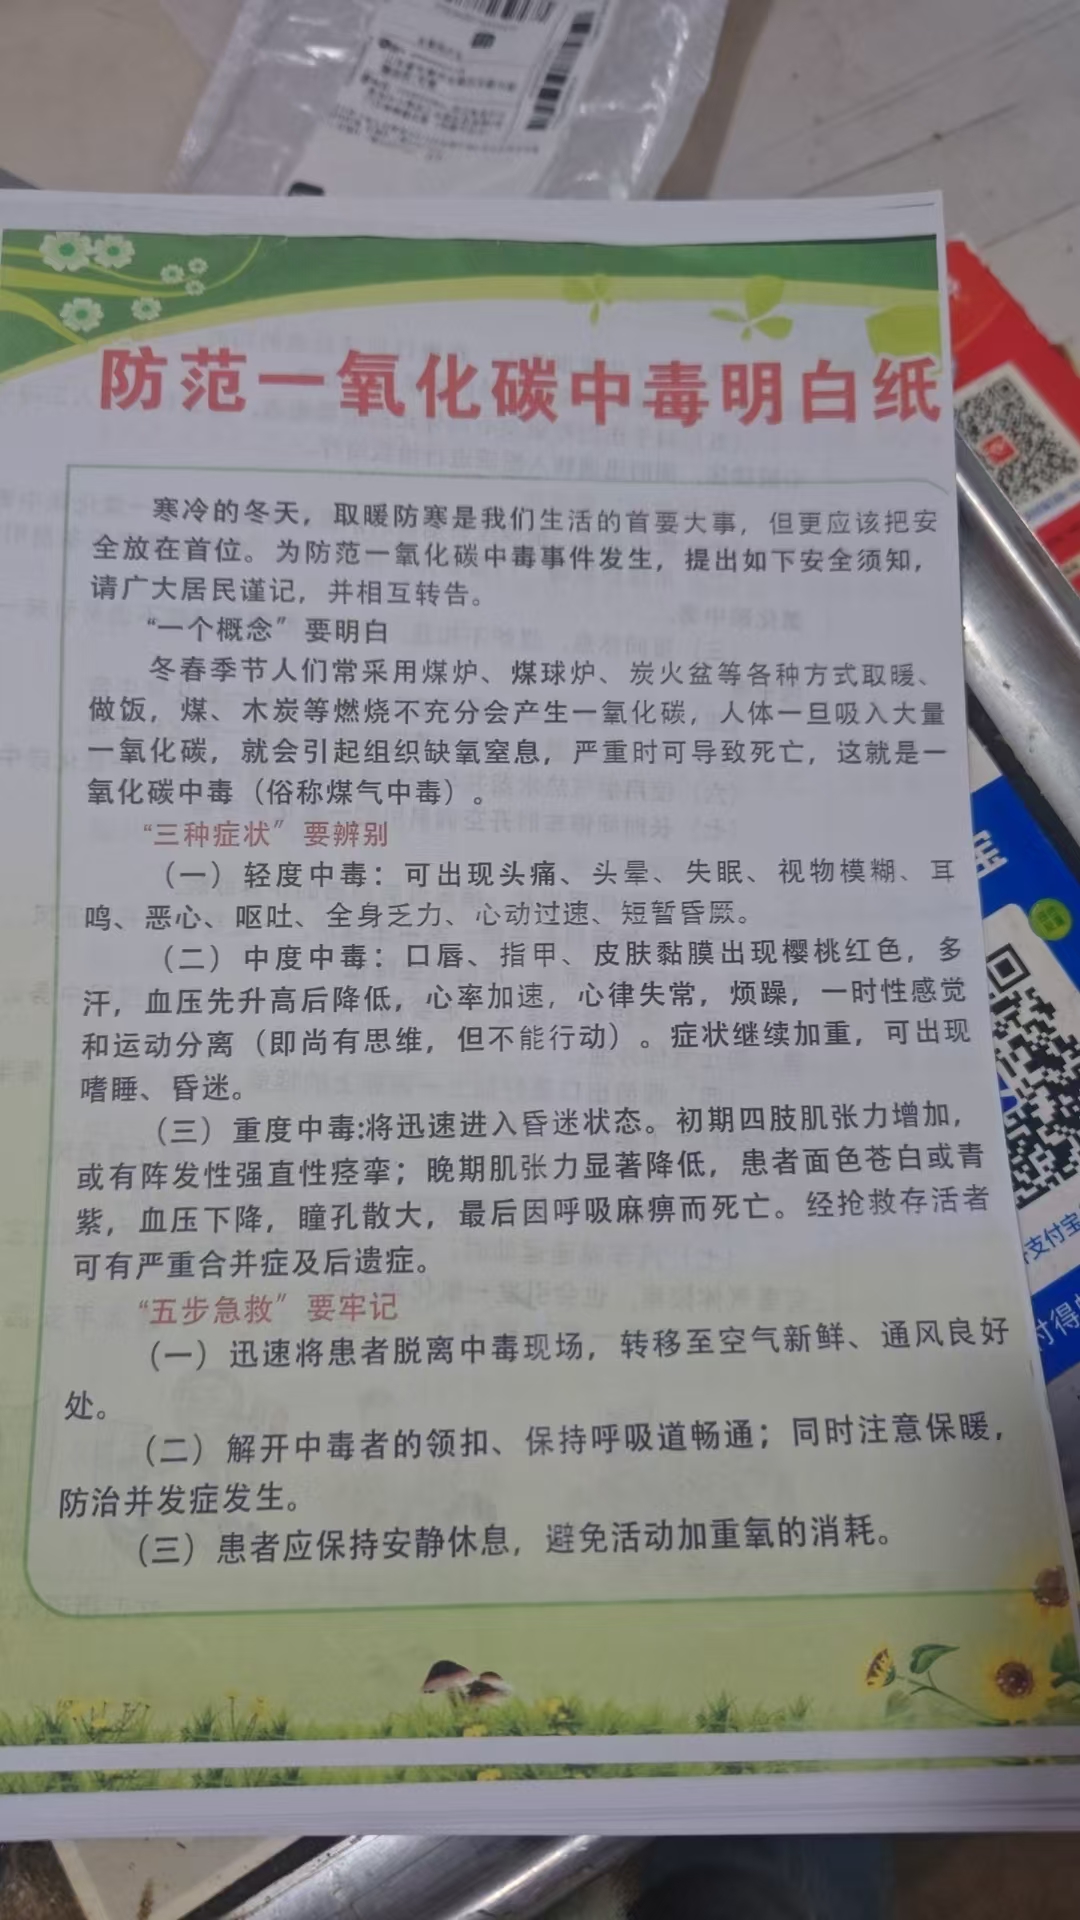 防范一氧化碳中毒明白纸
寒冷的冬天，取暖防寒是我们生活的首要大事，但更应该把安
全放在首位。为防范一氧化碳中毒事件发生，提出如下安全须知，
请广大居民谨记，并相互转告。
“一个概念”要明白
冬春季节人们常采用煤炉、煤球炉、炭火盆等各种方式取暖、
做饭，煤、木炭等燃烧不充分会产生一氧化碳，人体一旦吸入大量
一氧化碳，就会引起组织缺氧窒息，严重时可导致死亡，这就是一
氧化碳中毒（俗称煤气中毒）。
“三种症状”要辨别
（一）轻度中毒：可出现头痛、头晕、失眠、视物模糊、耳
鸣、恶心、呕吐、全身乏力、心动过速、短暂昏厥。
（二）中度中毒：口唇、指甲、皮肤黏膜出现樱桃红色，多
汗，血压先升高后降低，心率加速，心律失常，烦躁，一时性感觉
和运动分离（即尚有思维，但不能行动）。症状继续加重，可出现
嗜睡、昏迷。
（三）重度中毒:将迅速进入昏迷状态。初期四肢肌张力增加，
或有阵发性强直性痉挛；晚期肌张力显著降低，患者面色苍白或青
紫，血压下降，瞳孔散大，最后因呼吸麻痹而死亡。经抢救存活者
可有严重合并症及后遗症。
“五步急救”要牢记
（一）迅速将患者脱离中毒现场，转移至空气新鲜、通风良好
处。
（二）解开中毒者的领扣、保持呼吸道畅通；同时注意保暖，
防治并发症发生。
（三）患者应保持安静休息，避免活动加重氧的消耗。
宝
支付宝
付得